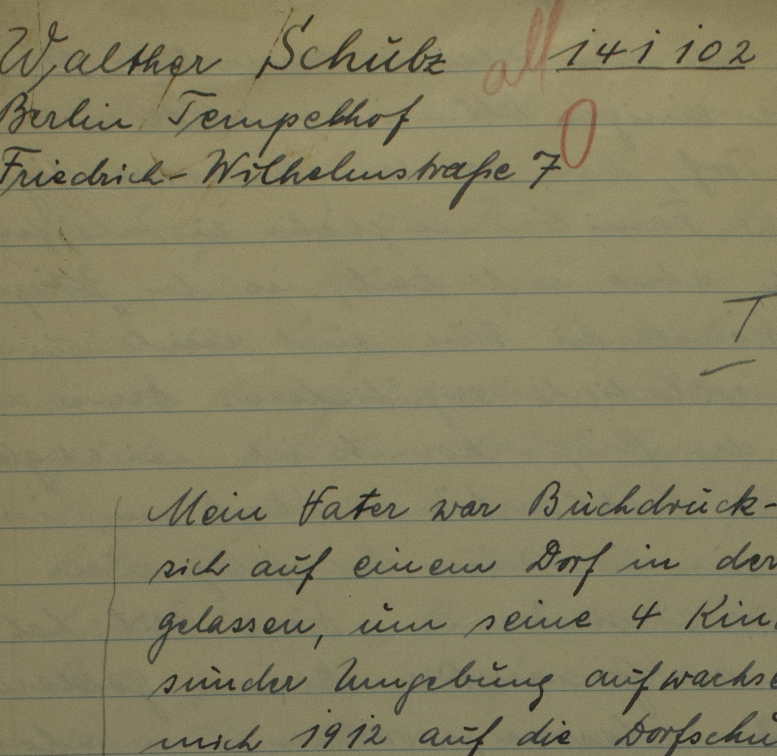 Walther Schulz all 141 102
Berlin Tempelhof 0
Friedrich-Wilhelmstraße 7
I
Mein Vater war Buchdruck-
sich auf einem Dorf in der
gelassen, um seine 4 Kin
sunder Umgebung aufwachse
mich 1912 auf die Dorfschu